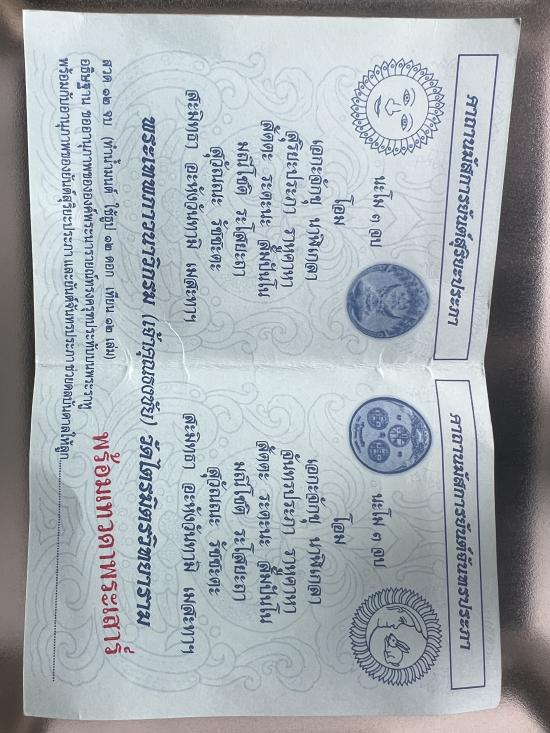 คาถานมัสการยันต์สุริยะประภา
นะโม ๓ จบ
โอม
เอกะจักขุ นาฬิเกลา
สุริยะประภา ราหูคาหา
สัตตะ ระตะนะ สัมปันโน
มณีโชติ ระโสยะถา
สุอัมเนะ รัชชะตะ
สะมิทธา อะหังวันทามิ เมสะทาฯ
คาถานมัสการยันต์จันทรประภา
นะโม ๓ จบ
โอม
เอกะจักขุ นาฬิเกลา
จันทรประภา ราหูคาหา
สัตตะ ระตะนะ สัมปันโน
มณีโชติ ระโสยะถา
สุอัมเนะ รัชชะตะ
สะมิทธา อะหังวันทามิ เมสะทาฯ
พระเทพภาวนาวิกรม (เจ้าคุณธงชัย) วัดไตรมิตรวิทยาราม
สวด ๑๒ จบ (ทำน้ำมนต์ ใช้ธูป ๑๒ ดอก เทียน ๑๒ เล่ม)
อธิษฐาน ขออานุภาพขององค์พระนารายณ์ทรงครุฑประทับบนพระราหู
พร้อมกับอานุภาพของยันต์สุริยะประภา และยันต์จันทรประภา ช่วยดลบันดาลให้ลูก
พร้อมเทวดาพระเสาร์